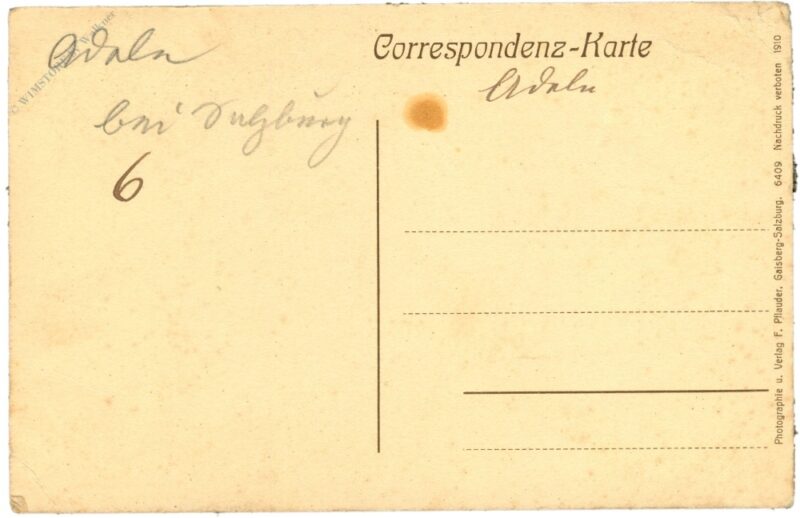 Adeln
bei Salzburg
6
Correspondenz-Karte
Adeln
Photographie u. Verlag F. Pflauder, Gaisberg-Salzburg. 6409 Nachdruck verboten 1910